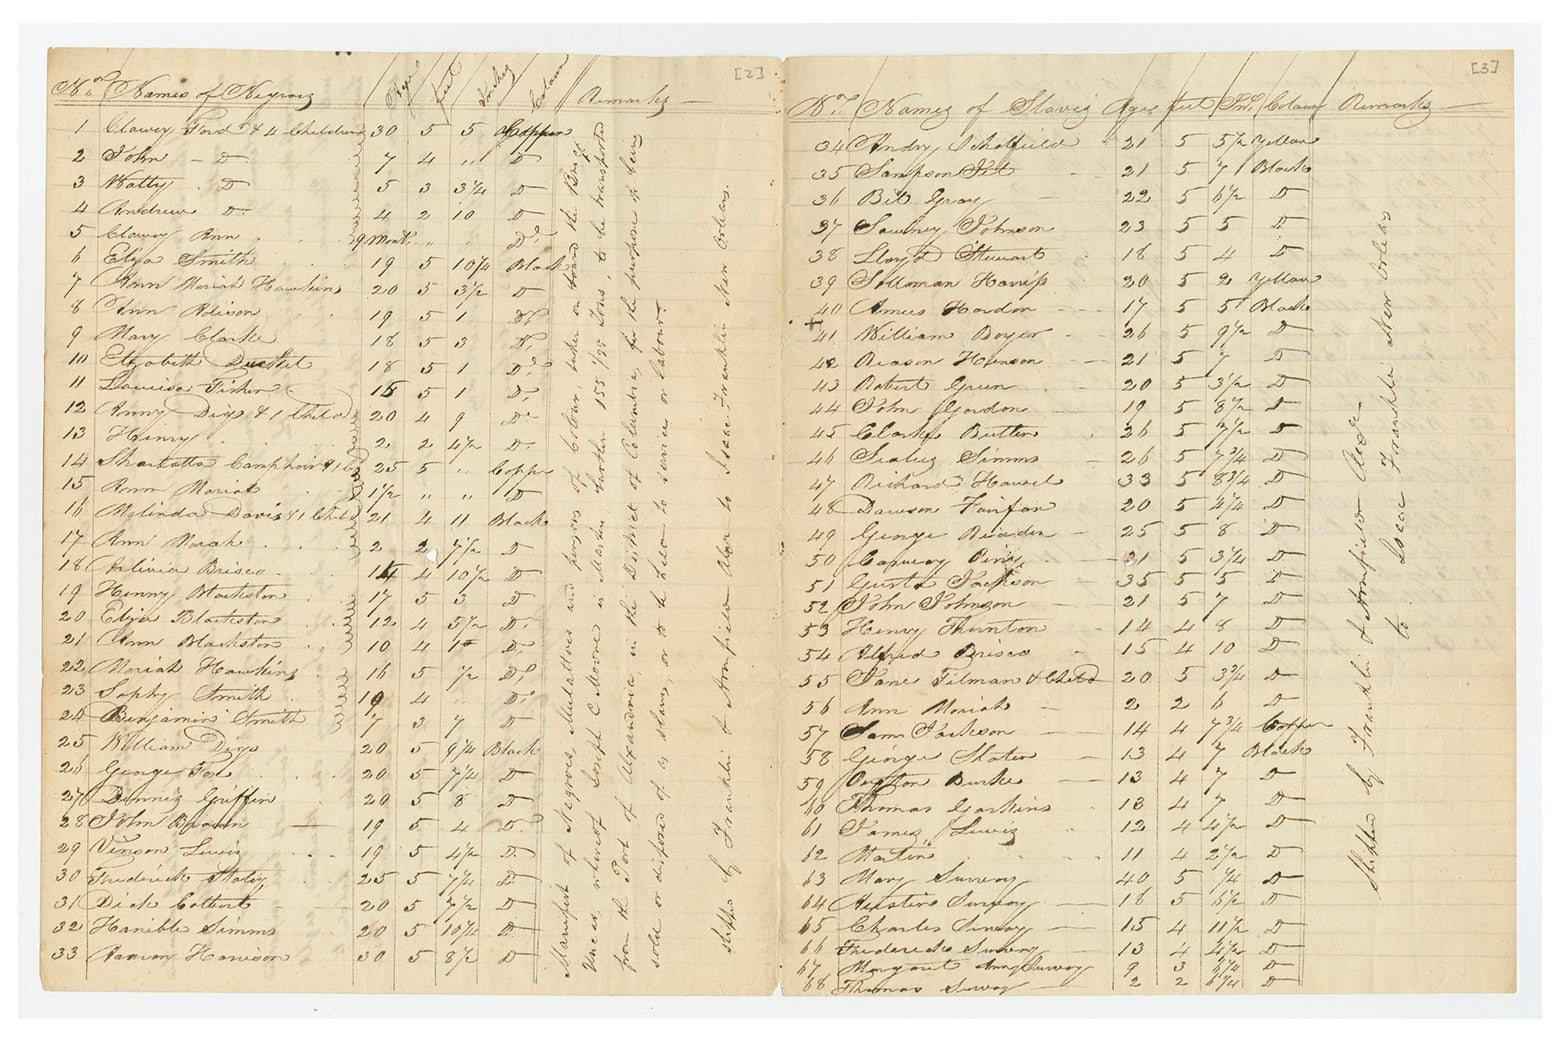 [2]
Nos. Names of Negroes Ages feet Inches Colour Remarks
1 Clawey Ford & 4 Children 30 5 5 Copper
2 John D 7 4 " D
3 Watty D 5 3 3 1/4 D
4 Andrew D 4 2 10 D
5 Clawey Ann 9 Month " " Do
6 Eliza Smith 19 5 10 1/4 Black
7 Ann Moriah Hawkins 20 5 3 1/2 D
8 Ann Robison 19 5 1 Do
9 Mary Clarke 18 5 3 Do
10 Elizabeth Duckket 18 5 1 Do
11 Louisa Fisher 15 5 1 Do
12 Anny Digs & 1 Child 20 4 9 Do
13 Henry 2 2 4 1/2 D
14 Sharlotta Camphor & 1 C 25 5 " Copper
15 Ann Moriah 1 1/2 " " D
16 Melinda Davis & 1 Child 21 4 11 Black
17 Ann Noriah 2 2 7 1/2 D
18 Arlivia Brisco 14 4 10 1/2 D
19 Henny Blackston 17 5 3 D
20 Eliza Blackiston 12 4 5 1/2 D
21 Ann Blackston 10 4 1 D
22 Moriah Hawkins 16 5 1/2 Do
23 Sophy Smith 19 4 " Do
24 Benjamin Smith 7 3 7 D
25 William Digs 20 5 9 1/4 Black
26 George Fox 20 5 7 1/4 D
27 Dennis Griffin 20 5 8 D
28 John Brown 19 5 4 Do
29 Vinson Lewis 19 5 4 1/2 D
30 Frederick Staley 25 5 7 1/4 D
31 Dick Colbert 20 5 7 1/2 D
32 Hanible Simms 20 5 10 1/4 D
33 Haaron Harrison 30 5 8 1/2 D
Manifest of Negroes, Mulattoes and persons of Colour, taken on board the Brig
Uncas, whereof Joseph C Moore is Master, Burthen 155 1/95 Tons, to be transported
from the Port of Alexandria in the District of Columbia, for the purpose of being
sold or disposed of as slaves, or to be held to service or labour.
Shipped by Franklin & Armfield Alex to Isaac Franklin New Orleas.
[3]
Nos. Names of Slavis Ages feet Ins. Colour Remarks
34 Andry Scholfield 21 5 5 1/2 Yellow
35 Sampson Tit 21 5 7 Black
36 Bil Gray 22 5 6 1/2 D
37 Sawney Johnson 23 5 5 D
38 Lloyd Stewart 18 5 4 D
39 Solloman Harriss 20 5 2 Yellow
40 Amus Hordon 17 5 5 Black
41 William Boyer 26 5 9 1/2 D
42 Reason Henson 21 5 7 D
43 Robert Green 20 5 3 1/2 D
44 John Gordon 19 5 8 1/2 D
45 Clarke Butler 26 5 7 1/2 D
46 Sealus Simms 26 5 7 3/4 D
47 Richard Hawel 33 5 8 3/4 D
48 Dawson Fairfax 20 5 4 1/4 D
49 George Reader 25 5 8 D
50 Carway Piny 21 5 3 1/4 D
51 Gusta Jackson 35 5 5 D
52 John Johnson 21 5 7 D
53 Henry Thornton 14 4 8 D
54 Alfrid Brisco 15 4 10 D
55 Jane Tilman & Child 20 5 3 3/4 D
56 Ann Moriah 2 2 6 D
57 Sam Jackson 14 4 7 3/4 Copper
58 George Slater 13 4 7 Black
59 Burke 13 4 7 D
60 Thomas Gaskins 13 4 7 D
61 James Lewis 12 4 4 1/2 D
62 Martin 11 4 2 1/2 D
63 Mary Survoy 40 5 1/4 D
64 Austin Survoy 16 5 6 1/2 D
65 Charles Survoy 15 4 11 1/2 D
66 Frederick Survoy 13 4 4 1/2 D
67 Margaret Ann Survoy 9 3 6 1/4 D
68 Thomas Survoy 2 2 6 1/4 D
Shipped by Franklin & Armfield Alexa
to
Isaac Franklin New Orleas